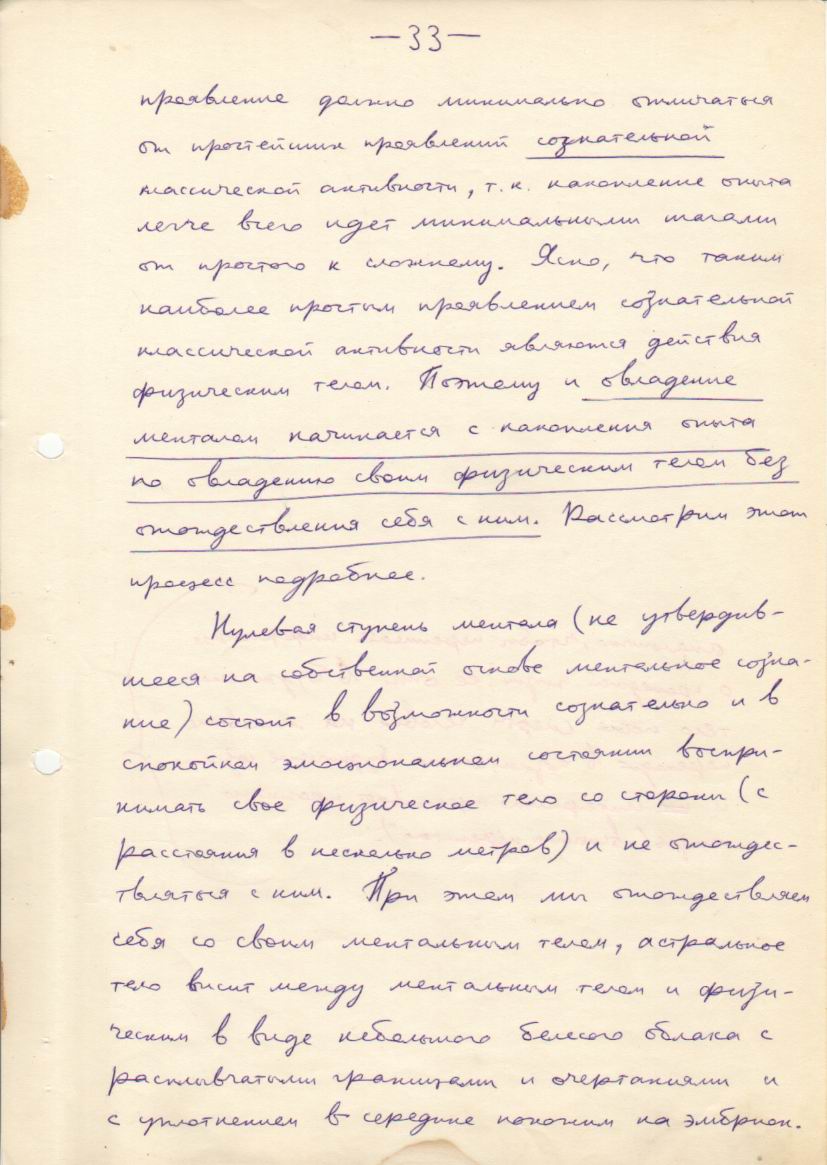 —33—
проявление должно минимально отличаться
от простейших проявлений сознательной
классической активности, т.к. накопление опыта
легче всего идет минимальными шагами
от простого к сложному. Ясно, что таким
наиболее простым проявлением сознательной
классической активности являются действия
физическим телом. Поэтому и овладение
менталом начинается с накопления опыта
по овладению своим физическим телом без
отождествления себя с ним. Рассмотрим этот
процесс подробнее.
Нулевая ступень ментала (не утвердив-
шееся на собственной основе ментальное созна-
ние) состоит в возможности сознательно и в
спокойном эмоциональном состоянии воспри-
нимать свое физическое тело со стороны (с
расстояния в несколько метров) и не отождес-
твляться с ним. При этом мы отождествляем
себя со своим ментальным телом, астральное
тело висит между ментальным телом и физи-
ческим в виде небольшого белесого облака с
расплывчатыми границами и очертаниями и
с уплотнением в середине похожим на эмбрион.